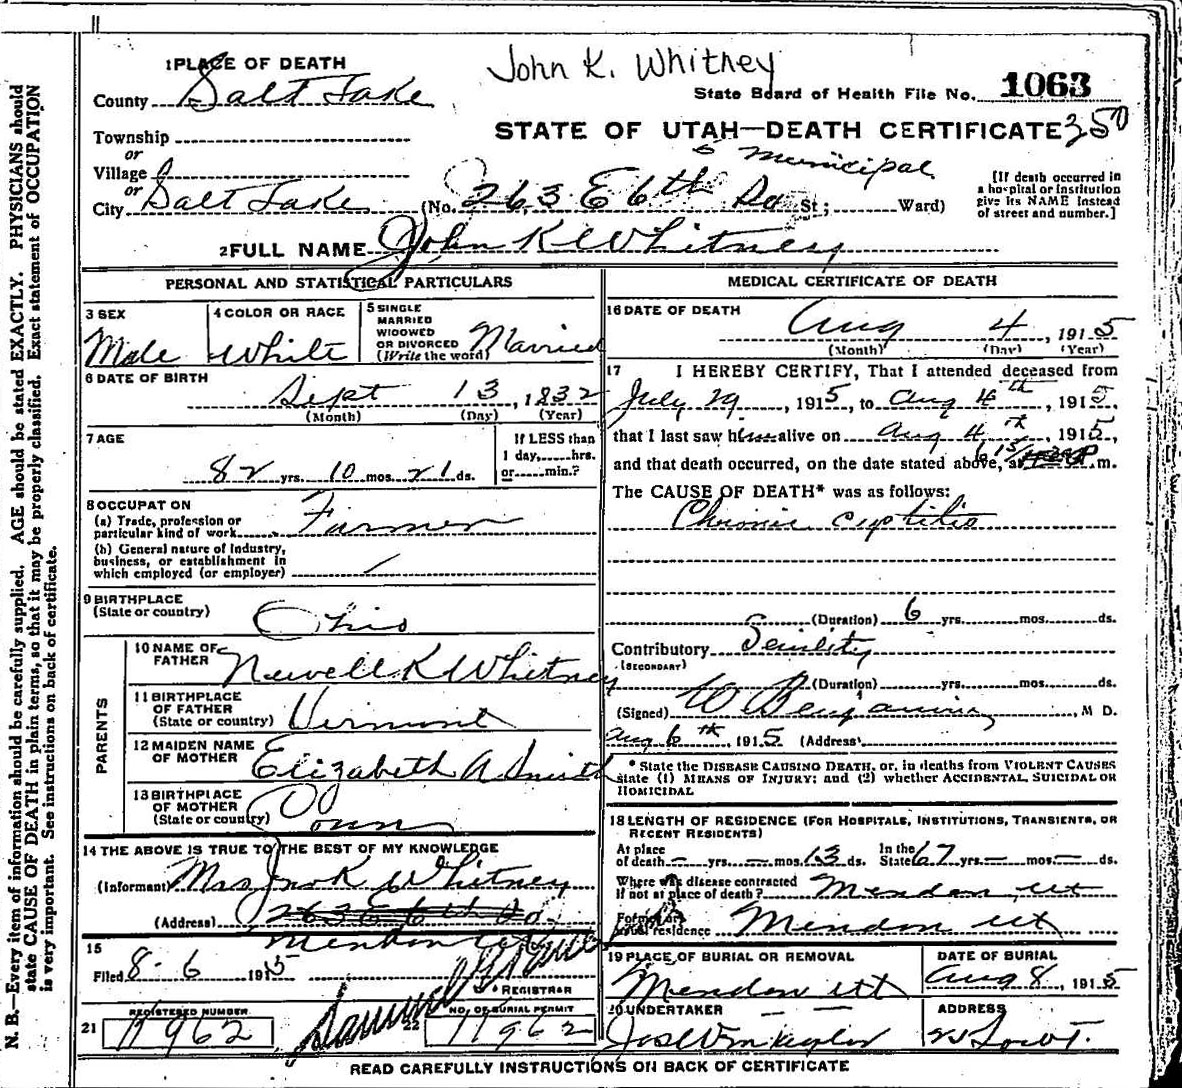 John K. Whitney
1 PLACE OF DEATH
County Salt Lake
State Board of Health File No. 1063
STATE OF UTAH—DEATH CERTIFICATE 350
Township
or
Village
or
City Salt Lake (No. 263 E 6th So St; Ward)
Municipal
[If death occurred in
a hospital or institution
give its NAME instead
of street and number.]
2 FULL NAME John K Whitney
PERSONAL AND STATISTICAL PARTICULARS
3 SEX
Male
4 COLOR OR RACE
White
5 SINGLE
MARRIED
WIDOWED
OR DIVORCED
(Write the word) Married
6 DATE OF BIRTH
Sept 13, 1832
(Month) (Day) (Year)
7 AGE
82 yrs. 10 mos. 21 ds.
If LESS than
1 day,......hrs.
or......min.?
8 OCCUPATION
(a) Trade, profession or
particular kind of work Farmer
(b) General nature of industry,
business, or establishment in
which employed (or employer)
9 BIRTHPLACE
(State or country) Ohio
PARENTS
10 NAME OF
FATHER Newell K Whitney
11 BIRTHPLACE
OF FATHER
(State or country) Vermont
12 MAIDEN NAME
OF MOTHER Elizabeth A Smith
13 BIRTHPLACE
OF MOTHER
(State or country) Conn
14 THE ABOVE IS TRUE TO THE BEST OF MY KNOWLEDGE
(Informant) Mrs Jno K Whitney
(Address) 263 E 6th So.
Mendon
15
Filed 8-6 1915
REGISTRAR
21 REGISTERED NUMBER
11962
22 NO. OF BURIAL PERMIT
11962
MEDICAL CERTIFICATE OF DEATH
16 DATE OF DEATH
Aug 4, 1915
(Month) (Day) (Year)
17 I HEREBY CERTIFY, That I attended deceased from
July 29, 1915, to Aug 4th, 1915,
that I last saw him alive on Aug 4th, 1915,
and that death occurred, on the date stated above, at P.m.
The CAUSE OF DEATH* was as follows:
Chronic cystitis
(Duration) 6 yrs. mos. ds.
Contributory Senility
(SECONDARY)
(Duration) yrs. mos. ds.
(Signed) W Benjamin, M D.
Aug 6th, 1915 (Address)
* State the DISEASE CAUSING DEATH, or, in deaths from VIOLENT CAUSES
state (1) MEANS OF INJURY; and (2) whether ACCIDENTAL, SUICIDAL OR
HOMICIDAL
18 LENGTH OF RESIDENCE (FOR HOSPITALS, INSTITUTIONS, TRANSIENTS, OR
RECENT RESIDENTS)
At place
of death – yrs. – mos. 13 ds. In the
State 67 yrs. – mos. – ds.
Where was disease contracted
If not at place of death? Mendon Ut
Former or
usual residence Mendon Ut
19 PLACE OF BURIAL OR REMOVAL
Mendon Ut
DATE OF BURIAL
Aug 8, 1915
20 UNDERTAKER
Jos Wm Taylor
ADDRESS
READ CAREFULLY INSTRUCTIONS ON BACK OF CERTIFICATE
N. B.—Every item of information should be carefully supplied. AGE should be stated EXACTLY. PHYSICIANS should
state CAUSE OF DEATH in plain terms, so that it may be properly classified. Exact statement of OCCUPATION
is very important. See instructions on back of certificate.